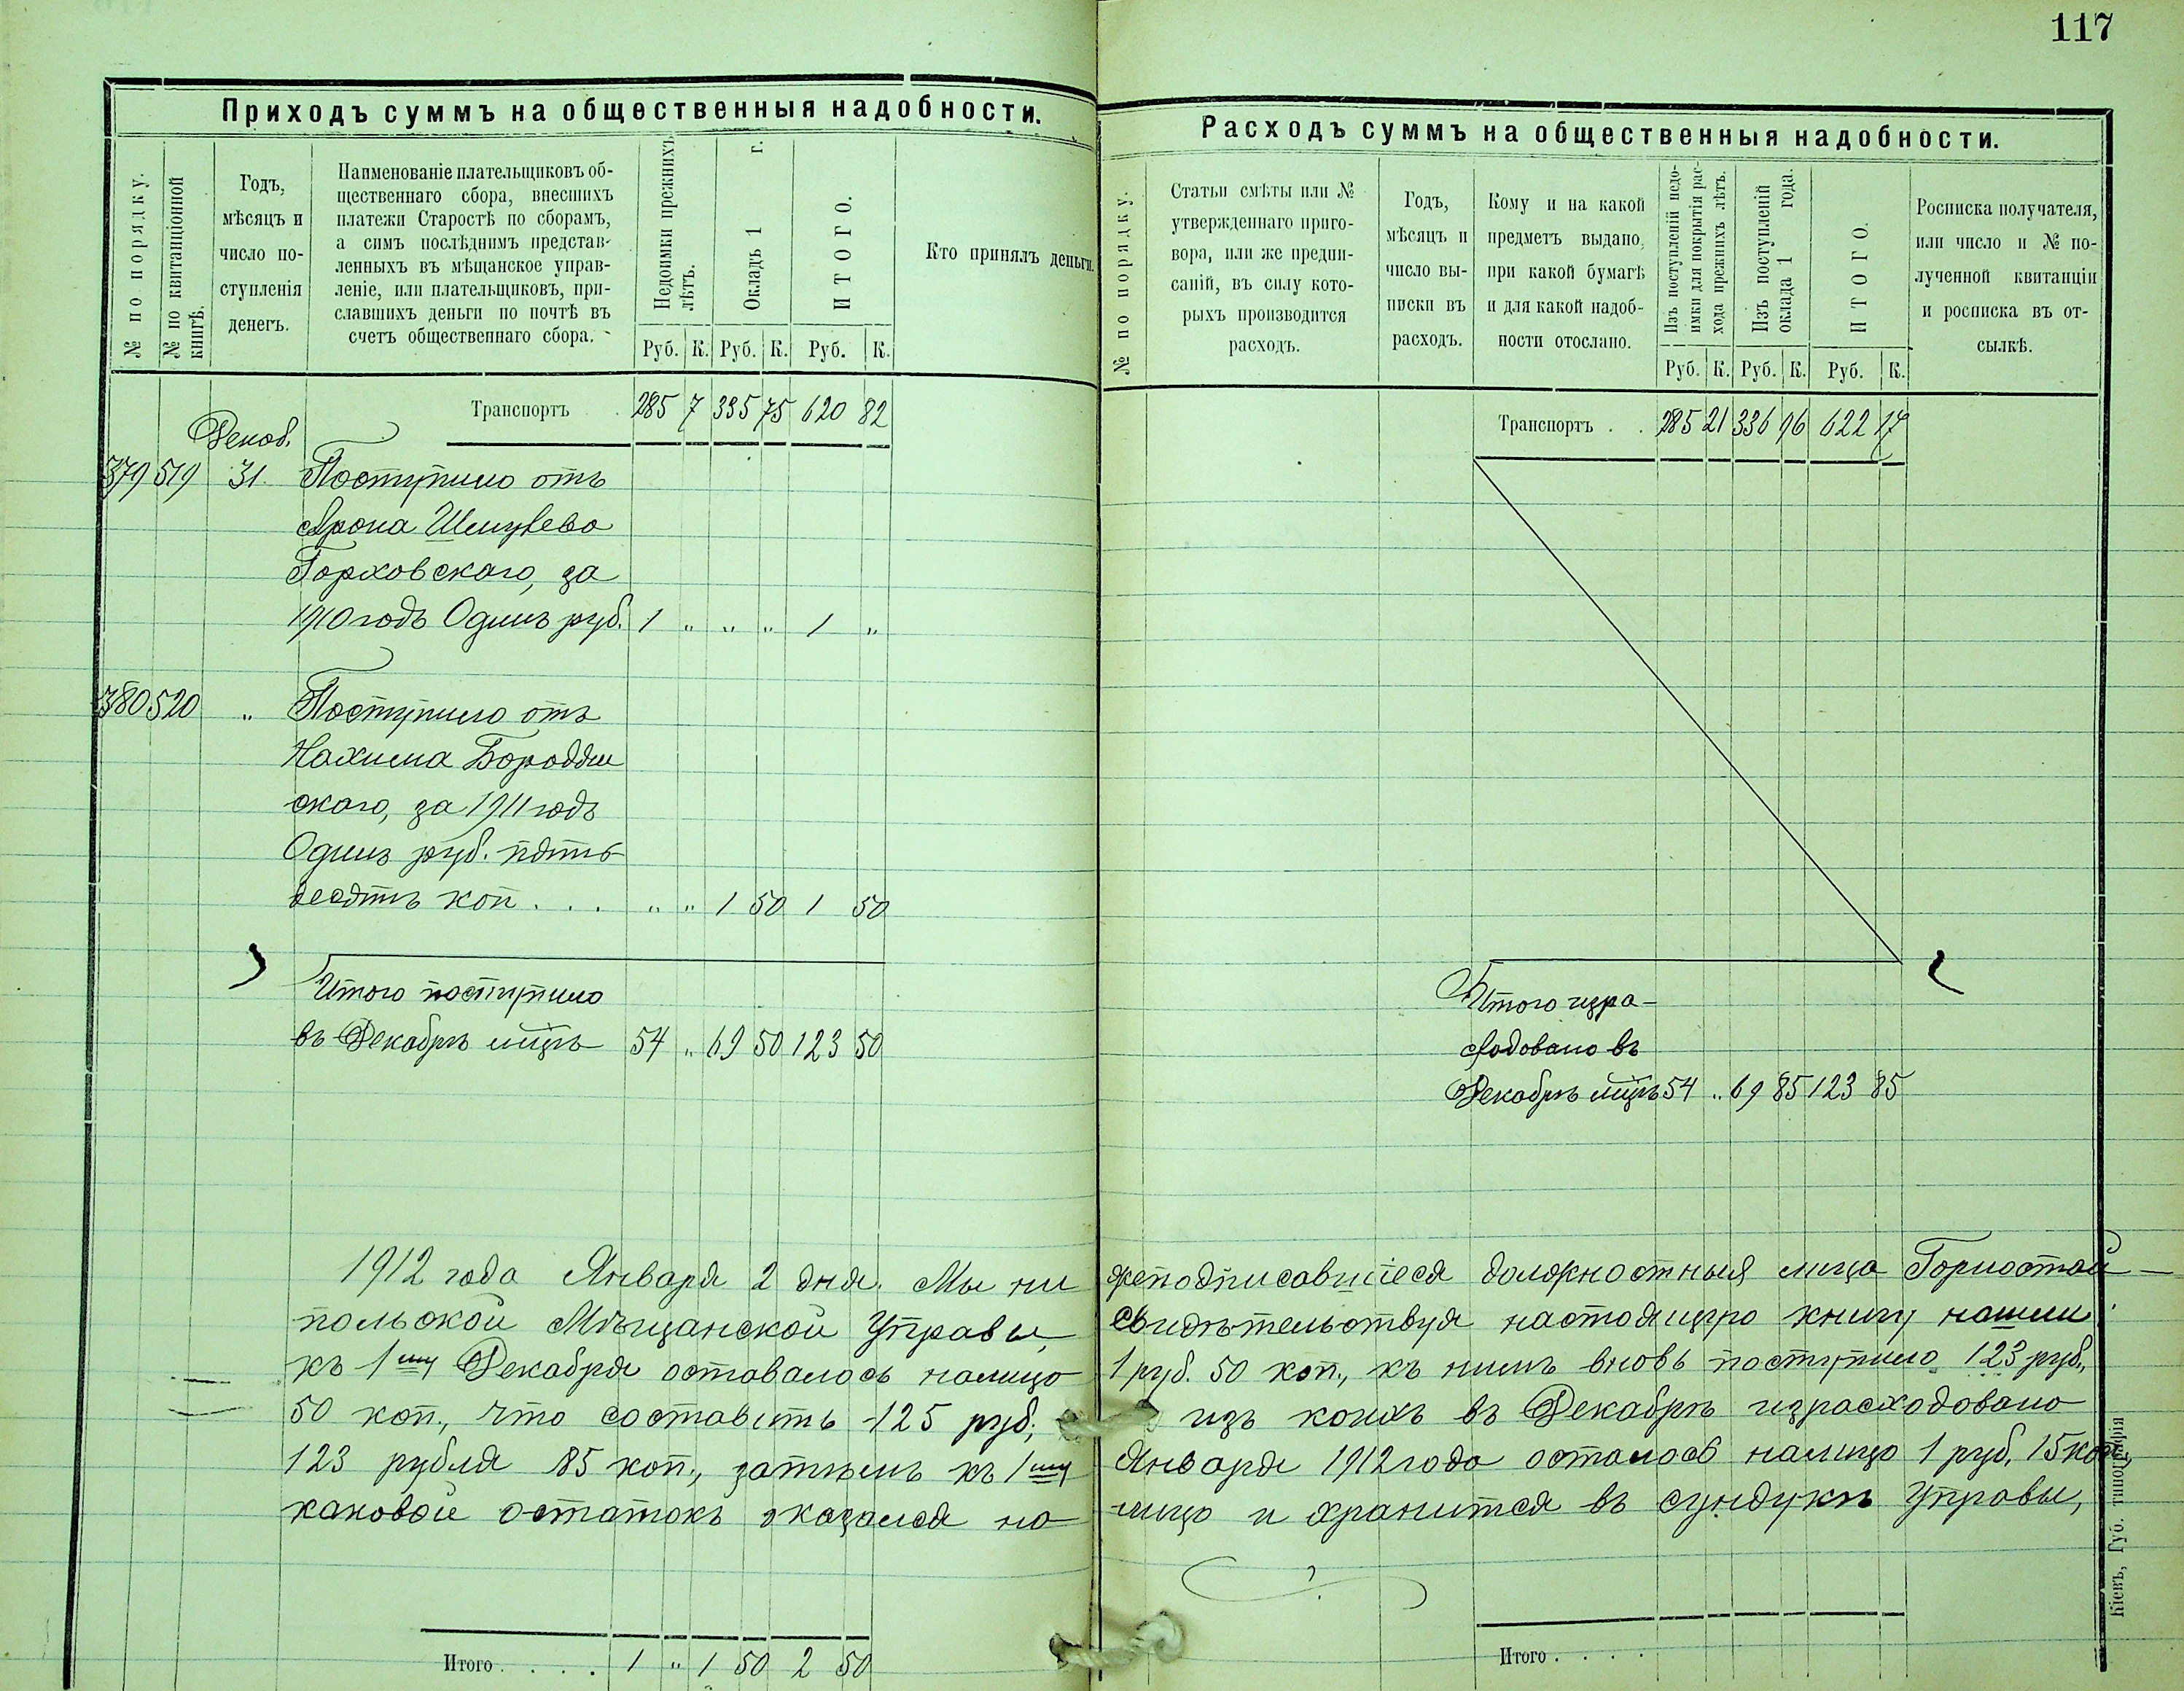 117
Приходъ суммъ на общественныя надобности.
№ по порядку.
№ по квитанціонной книгѣ.
Годъ,
мѣсяцъ и
число по-
ступленія
денегъ.
Наименованіе плательщиковъ об-
щественнаго сбора, внесшихъ
платежи Старостѣ по сборамъ,
а симъ послѣднимъ представ-
ленныхъ въ мѣщанское управ-
леніе, или плательщиковъ, при-
славшихъ деньги по почтѣ въ
счетъ общественнаго сбора.
Недоимки прежнихъ
лѣтъ.
Окладъ 1 г.
ИТОГО.
Кто принялъ деньги.
Руб. К. Руб. К. Руб. К.
Транспортъ 285 7 335 75 620 82
Декаб.
379 519 31. Поступило отъ
Арона
Горховскаго, за
1910 годъ Одинъ руб. 1 " " " 1 "
380 520 " Поступило отъ
Нахима
скаго, за 1911 годъ
Одинъ руб. пять-
десятъ коп. . . . " " 1 50 1 50
Итого поступило
въ Декабрѣ мцѣ 54 " 69 50 123 50
1912 года Января 2 дня. Мы ни
польской Мѣщанской Управы,
къ 1му Декабря оставалось налицо
50 коп., что составитъ 125 руб.,
123 рубля 85 коп., затѣмъ къ 1му
каковой остатокъ оказался на
Итого . . . . 1 " 1 50 2 50
Расходъ суммъ на общественныя надобности.
№ по порядку.
Статьи смѣты или №
утвержденнаго приго-
вора, или же предпи-
саній, въ силу кото-
рыхъ производится
расходъ.
Годъ,
мѣсяцъ и
число вы-
писки въ
расходъ.
Кому и на какой
предметъ выдано,
при какой бумагѣ
и для какой надоб-
ности отослано.
Изъ поступленій недо-
имки для покрытія рас-
хода прежнихъ лѣтъ.
Изъ поступленій
оклада 1 года.
ИТОГО.
Росписка получателя,
или число и № по-
лученной квитанціи
и росписка въ от-
сылкѣ.
Руб. К. Руб. К. Руб. К.
Транспортъ . . 285 21 336 96 622 17
Итого изра-
сходовано въ
Декабрѣ мцѣ 54 " 69 85 123 85
жеподписавшіеся должностныя лица Горностай-
свидѣтельствуя настоящую книгу нашли:
1 руб. 50 коп., къ нимъ вновь поступило 123 руб.,
изъ коихъ въ Декабрѣ израсходовано
Января 1912 года осталось налицо 1 руб. 15 коп.
лицо и хранится въ сундукѣ Управы,
Итого . . . .
Кіевъ, Губ. типографія